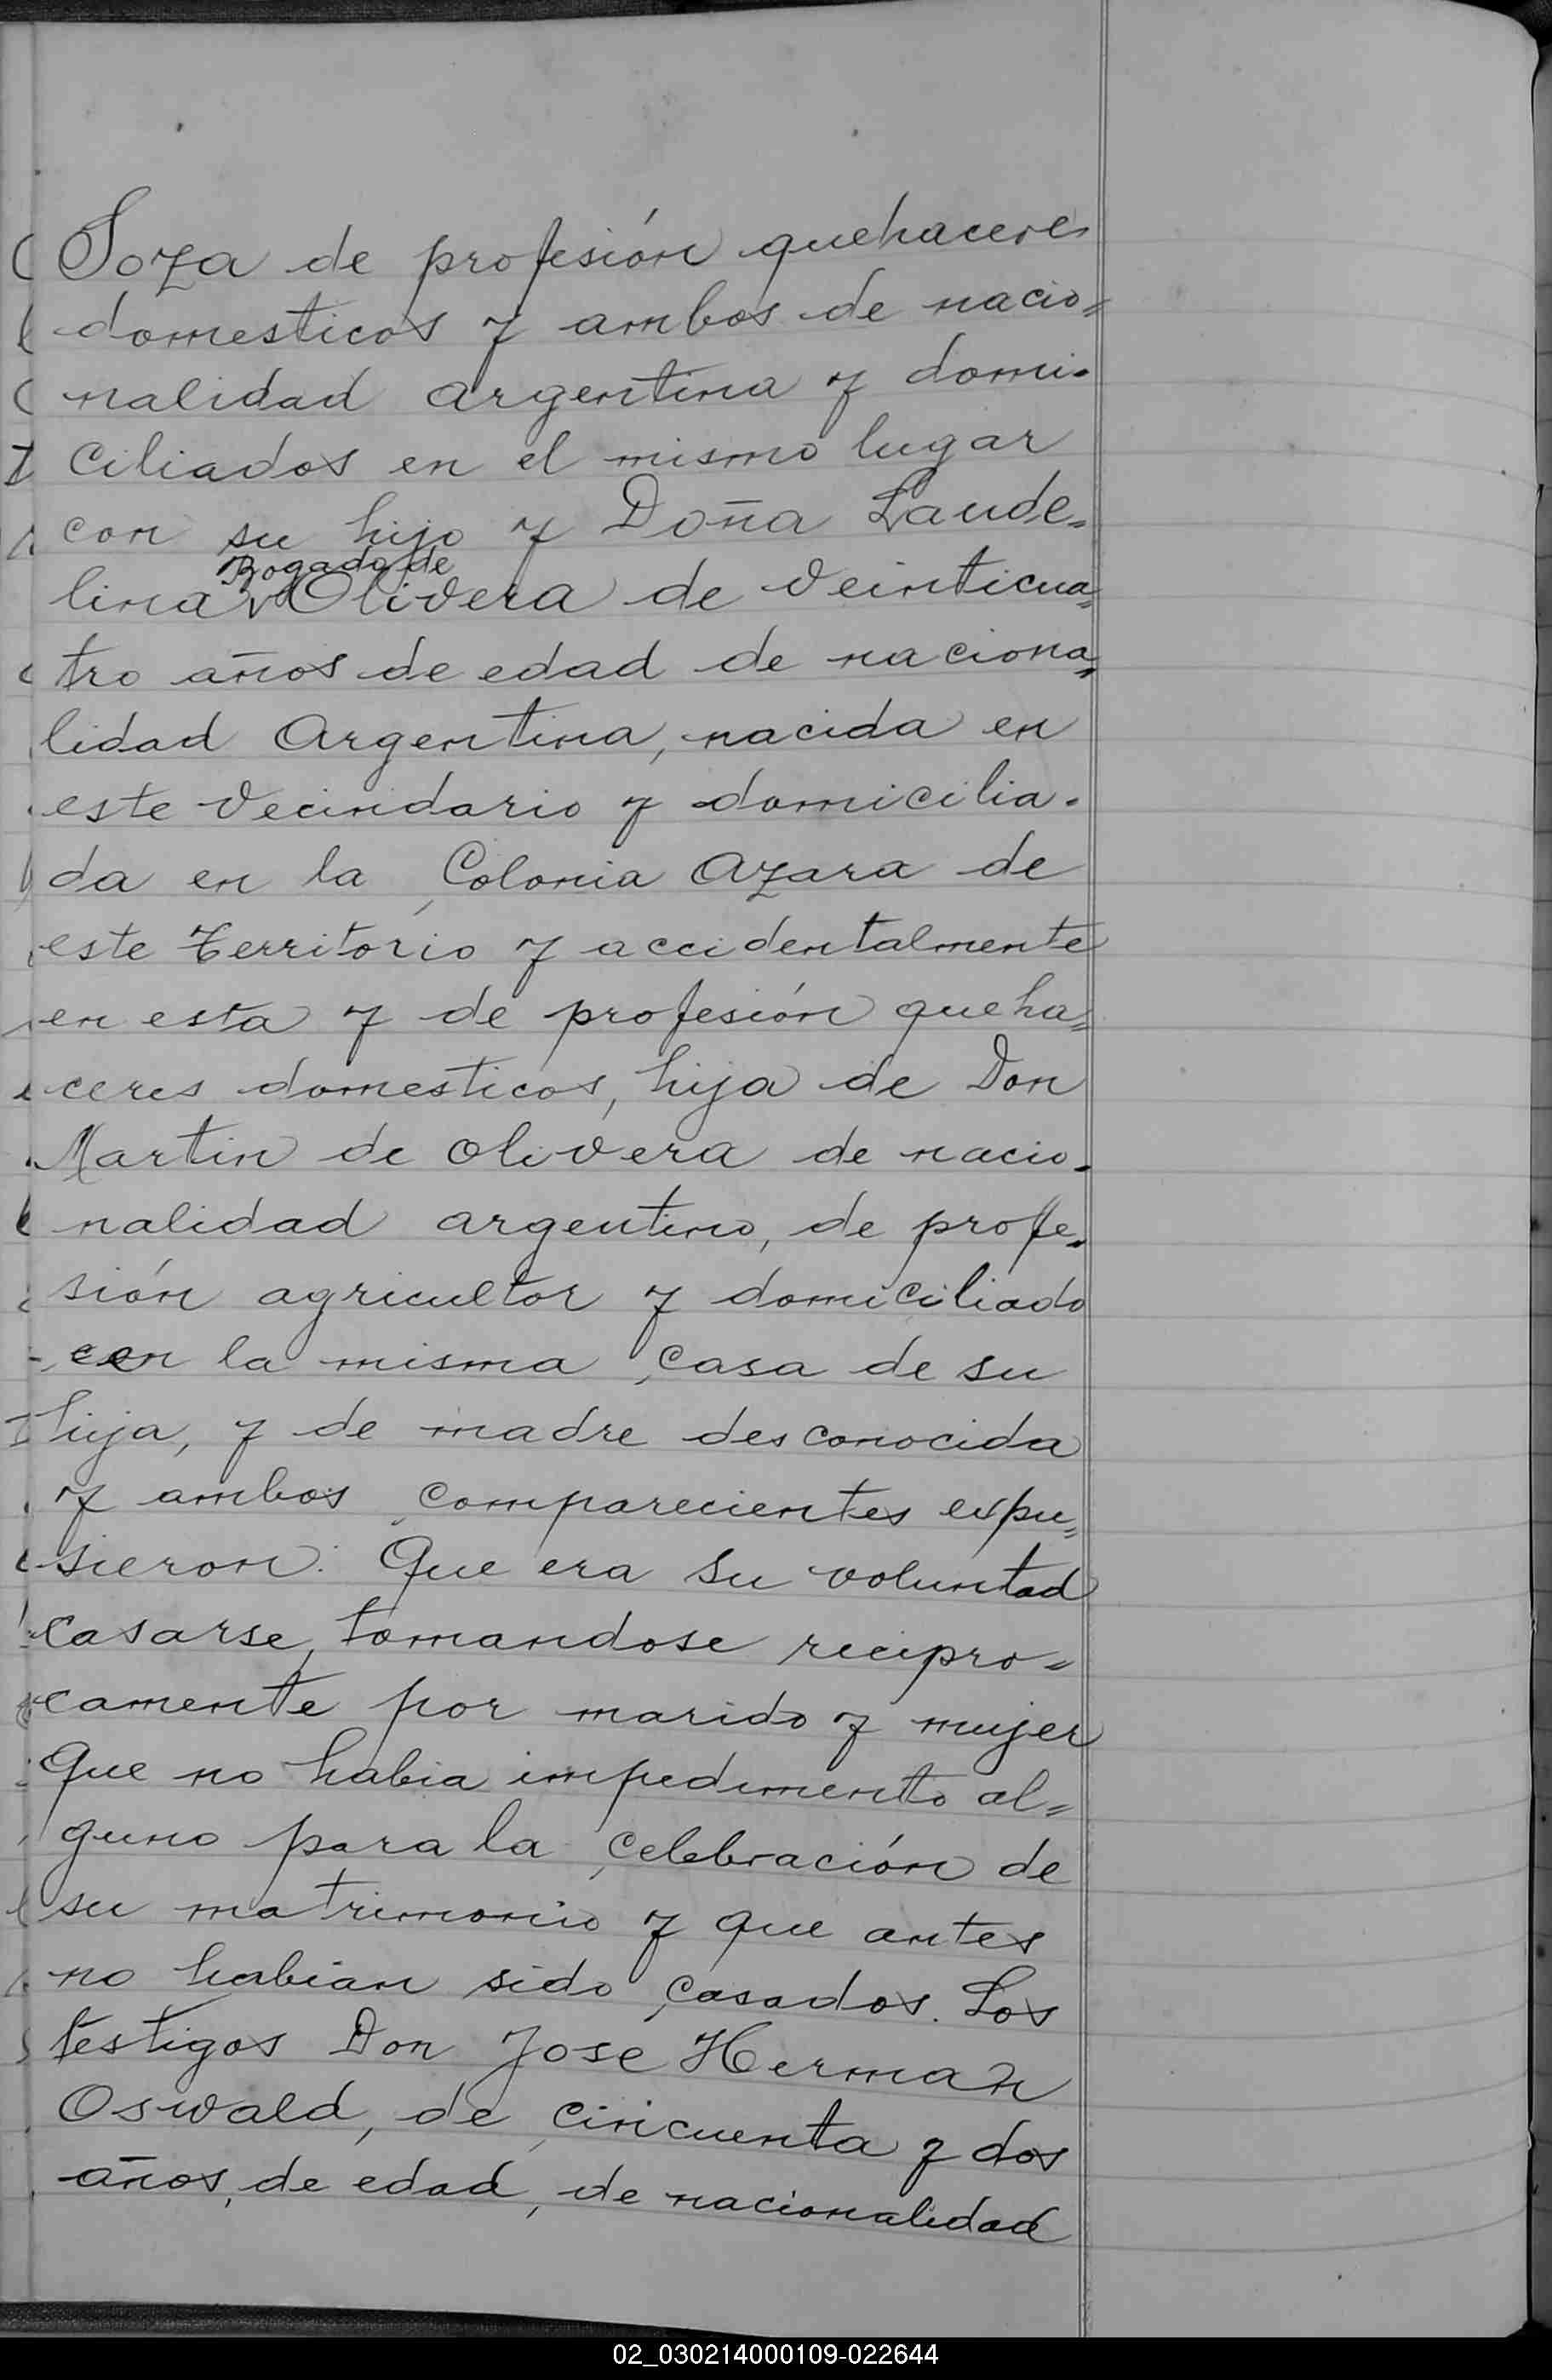 Soza de profesión quehaceres
domesticos y ambos de nacio=
nalidad argentina y domi-
ciliados en el mismo lugar
con su hijo y Doña Laude=
Bogado de
lina Olivera de veinticua=
tro años de edad de naciona=
lidad Argentina, nacida en
este vecindario y domicilia-
da en la Colonia Azara de
este territorio y accidentalmente
en esta y de profesión queha=
ceres domesticos, hija de Don
Martin de Olivera de nacio-
nalidad argentino, de profe=
sión agricultor y domiciliado
en la misma casa de su
hija, y de madre desconocida
y ambos comparecientes expu=
sieron: Que era su voluntad
casarse, tomandose recipro=
camente por marido y mujer
Que no habia impedimento al=
guno para la celebración de
su matrimonio y que antes
no habian sido casados. Los
testigos Don José Herman
Oswald, de cincuenta y dos
años, de edad, de nacionalidad
02_030214000109-022644